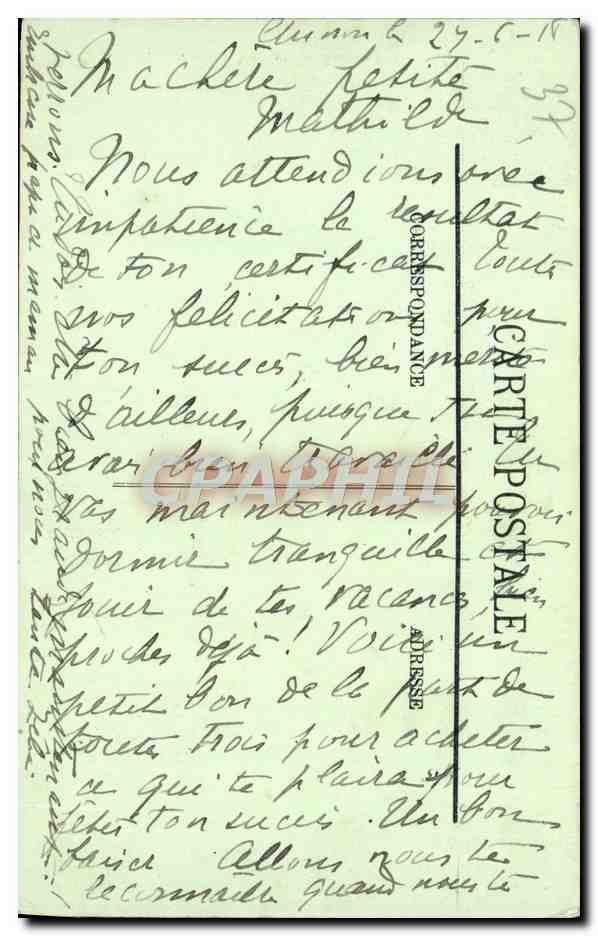 27-6-18
37
Ma chère petite
Mathilde
Nous attendions avec
impatience le resultat
De ton certificat Toutes
nos felicitations pour
ton succès, bien mérité
D'ailleurs, puisque tu
avais bien travaillé Tu
vas maintenant pouvoir
dormir tranquille et
jouir de tes vacances, bien
proches déjà! Voici un
petit bon de la part de
toutes trois pour acheter
ce qui te plaira pour
fêter ton succès. Un bon
baiser Allons nous te
reconnaître quand nous te
verrons.
Embrasse papa et maman pour nous Tante
CORRESPONDANCE
CARTE POSTALE
ADRESSE
CPAPHIL